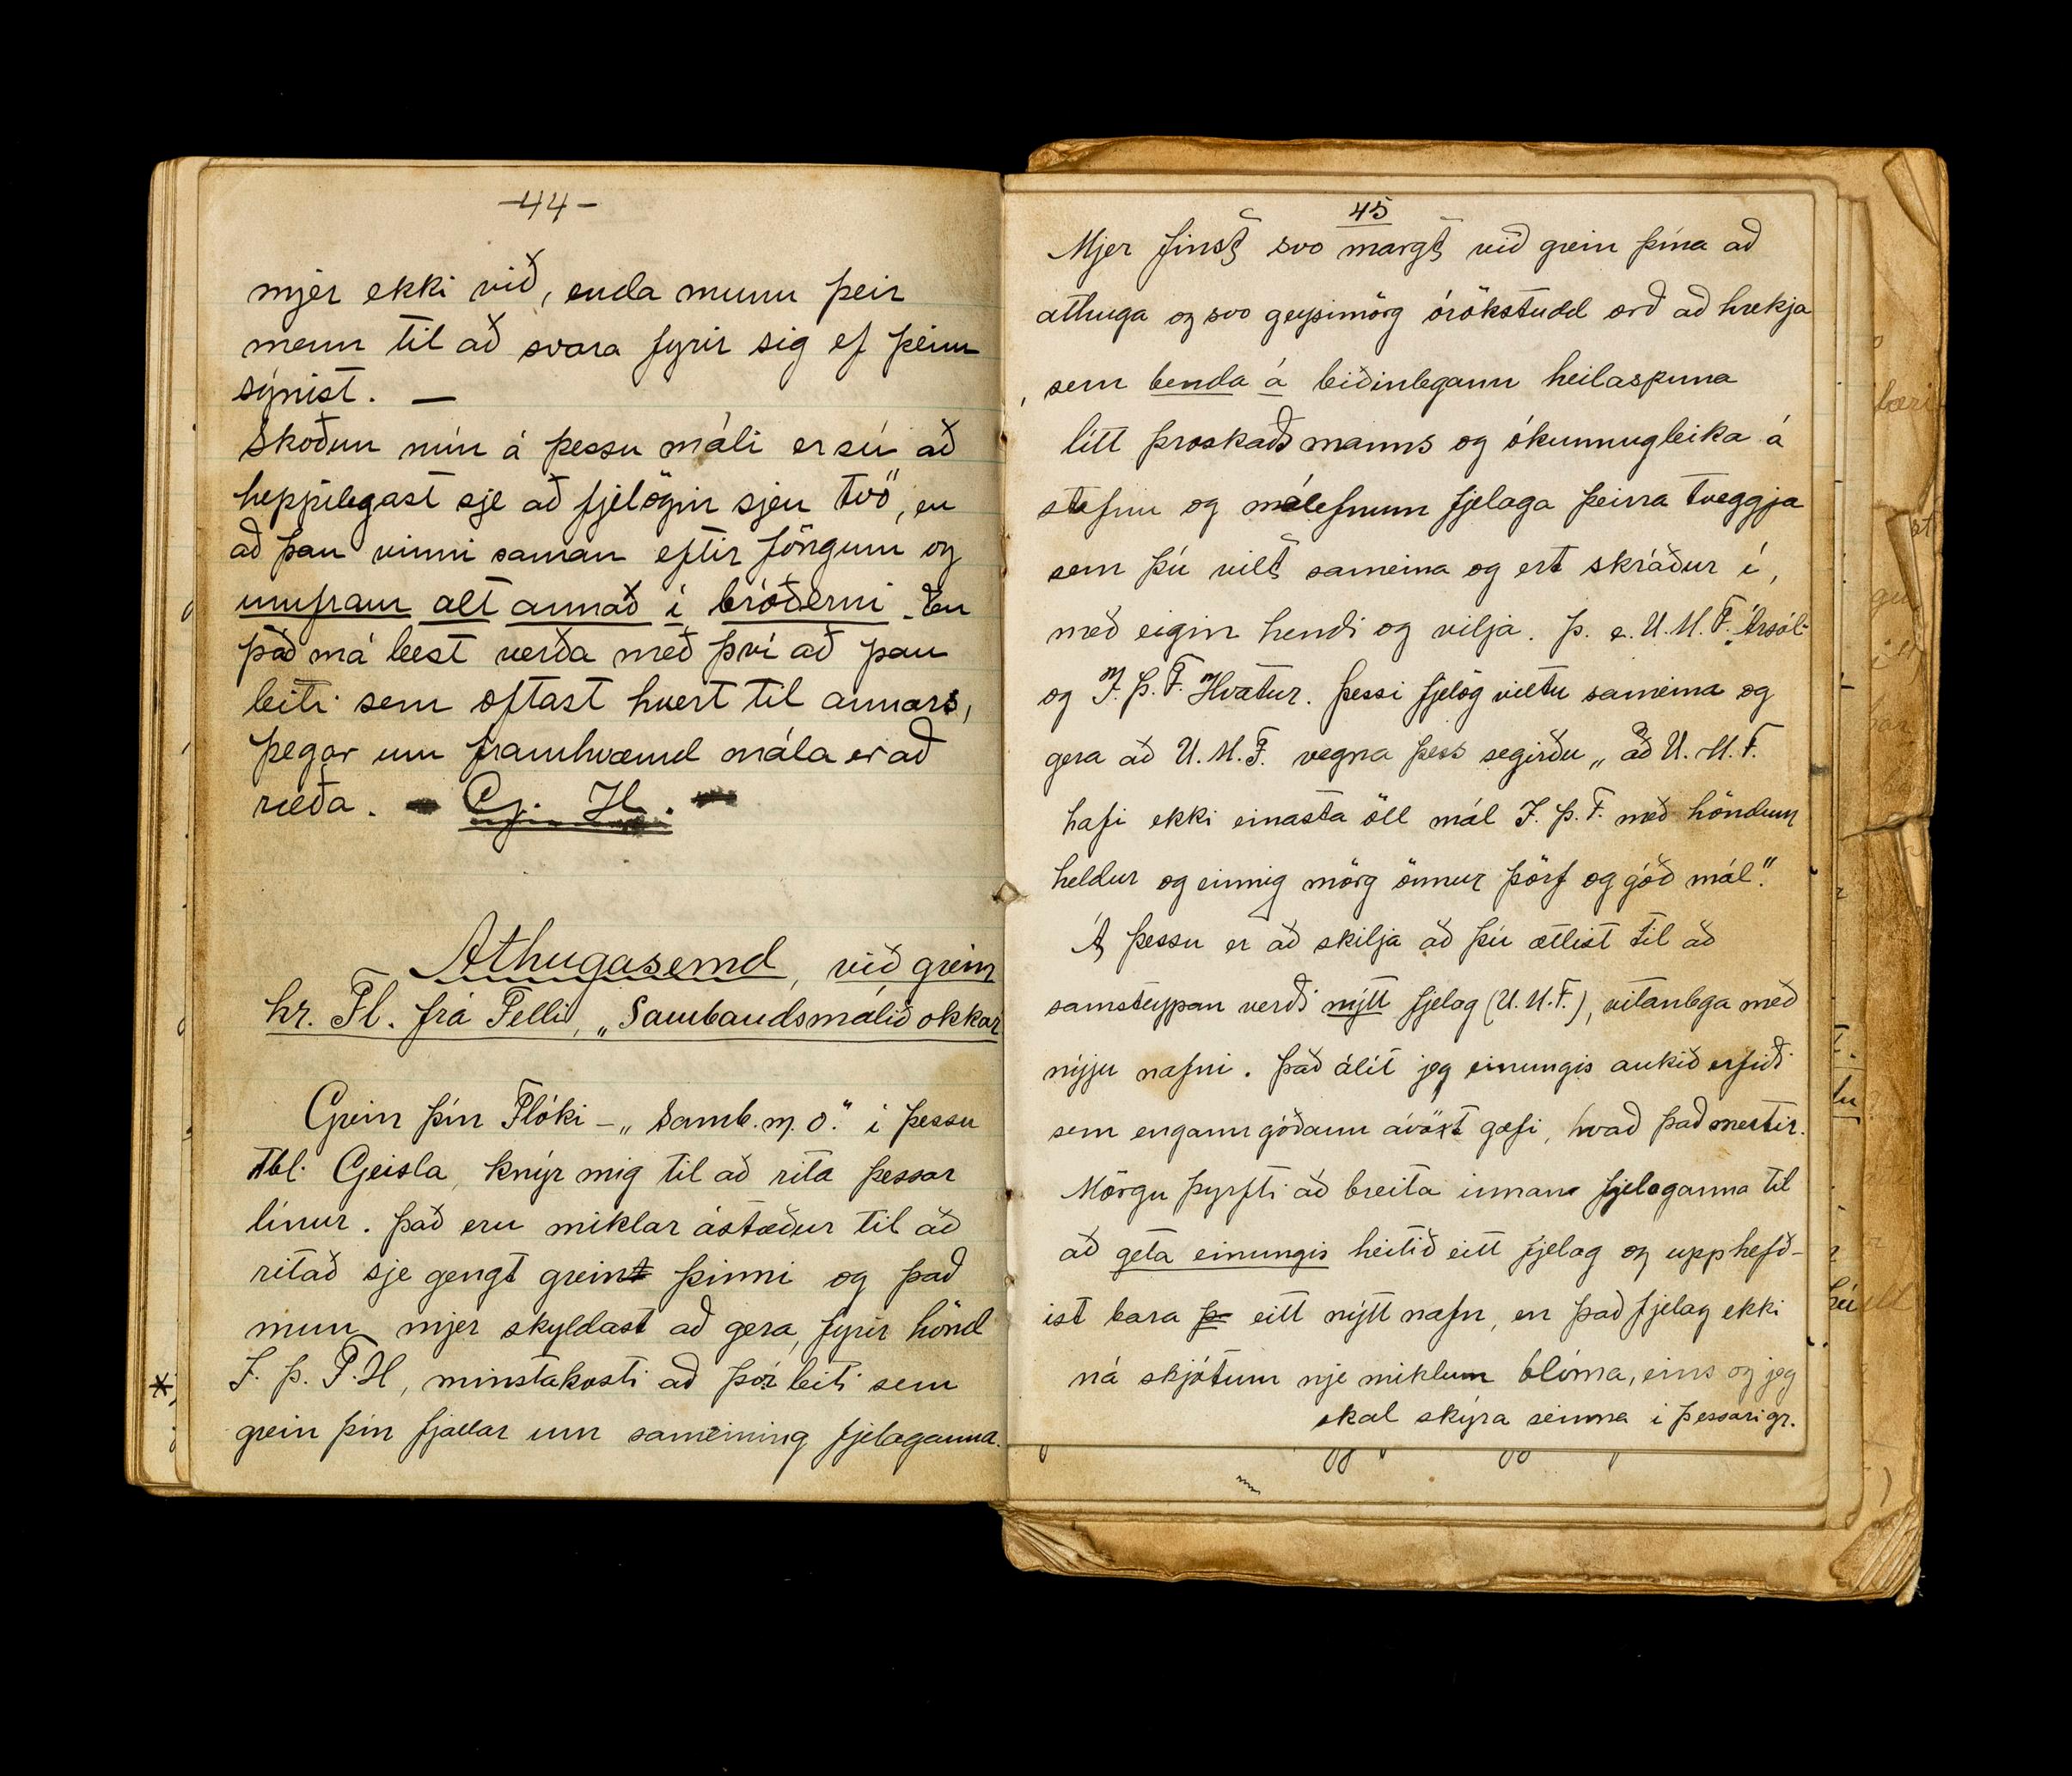 -44-
mjer ekki við, enda munu þeir
menn til að svara fyrir sig ef þeim
sýnist. —
Skoðun mín á þessu máli er sú að
heppilegast sje að fjelögin sjeu tvö, en
að þau vinni saman eftir föngum og
umfram alt annað í bróðerni. En
það má best verða með því að þau
leiti sem oftast hvert til annars,
þegar um framkvæmd mála er að
ræða. - Gj. H. -
Athugasemd, við grein
hr. Fl. frá Felli, „Sambandsmálið okkar
Grein þín Flóki - „Samb.m.o." í þessu
tbl. Geisla, knýr mig til að rita þessar
línur. Það eru miklar ástæður til að
ritað sje gengt grein þinni og það
mun mjer skyldast að gera, fyrir hönd
Í. Þ. F. H, minstakosti að því leiti sem
grein þín fjallar um sameining fjelaganna.
45
Mjer finst svo margt við grein þína að
athuga og svo geysimörg órökstudd orð að hrekja
, sem benda á leiðinlegann heilaspuna
lítt þroskaðs manns og ókunnugleika á
stefnu og málefnum fjelaga þeirra tveggja
sem þú vilt sameina og ert skráður í,
með eigin hendi og vilja. Þ. e. U.M.F. Ársól
og Í. Þ. F. Hvatur. Þessi fjelög viltu sameina og
gera að U.M.F. vegna þess segirðu „að U.M.F.
hafi ekki einasta öll mál Í. Þ. F. með höndum
heldur og einnig mörg önnur þörf og góð mál".
Á þessu er að skilja að þú ætlist til að
samsteypan verði nýtt fjelag (U.M.F.), vitanlega með
nýju nafni. Það álít jeg einungis aukið erfiði
sem engann góðann ávöxt gæfi, hvað það snertir.
Mörgu þyrfti að breita innan fjelaganna til
að geta einungis heitið eitt fjelag og upphefð-
ist bara þ eitt nýtt nafn, en það fjelag ekki
ná skjótum nje miklum blóma, eins og jeg
skal skýra seinna í þessari gr.